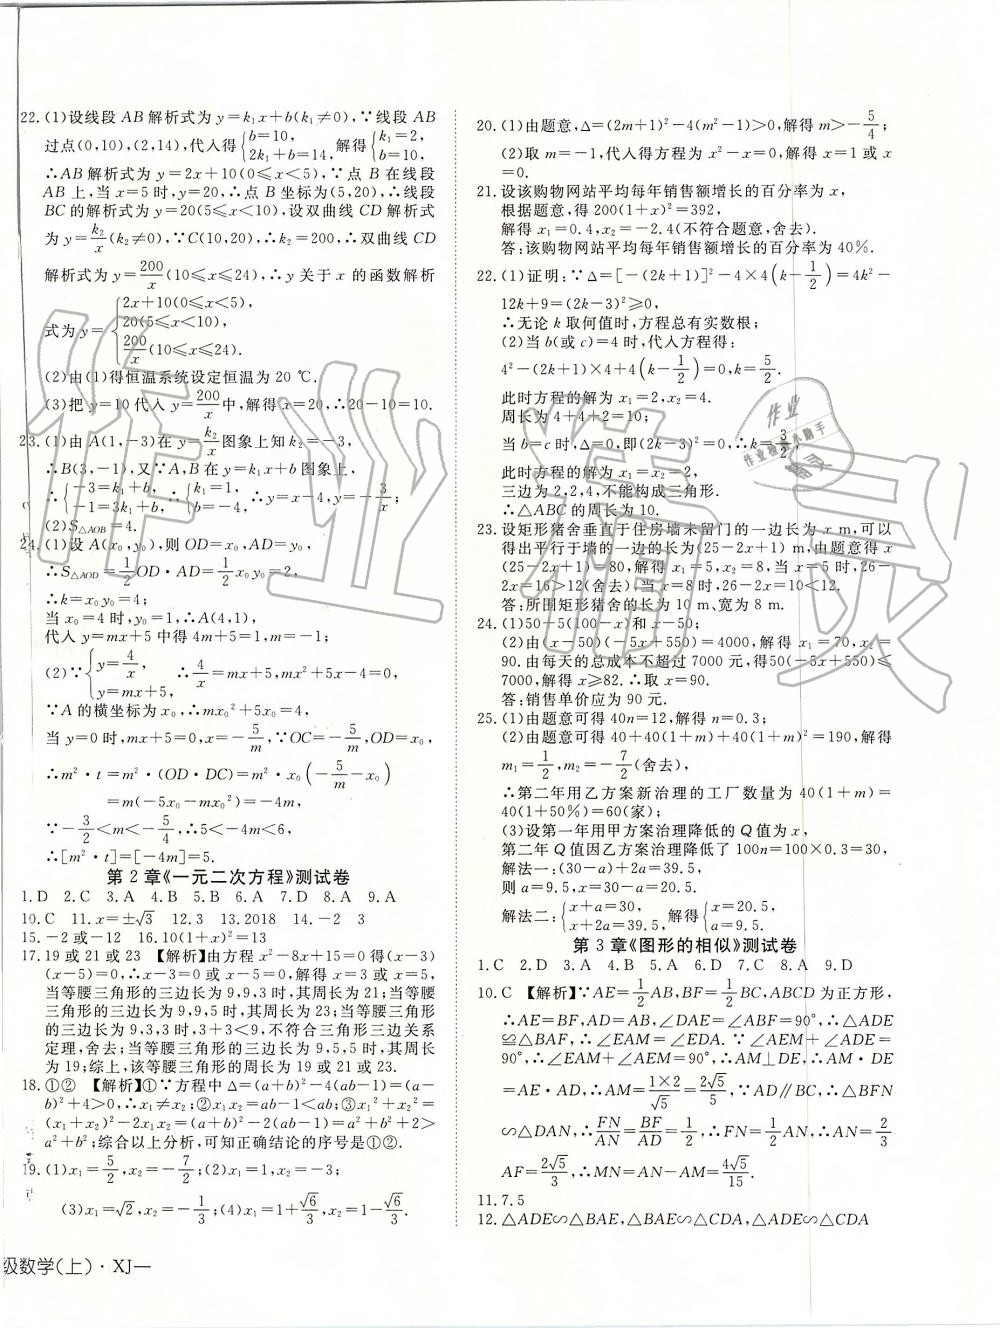 22.(1)设线段 AB 解析式为 y=k₁x+b(k₁≠0),∵线段 AB
过点(0,10),(2,14),代入得{b=10, 2k₁+b=14, 解得{k₁=2, b=10,
∴AB 解析式为 y=2x+10(0≤x<5),∵点 B 在线段
AB 上,当 x=5 时,y=20,∴点 B 坐标为(5,20),∴线段
BC 的解析式为 y=20(5≤x<10),设双曲线 CD 解析式
为 y=k₂/x(k₂≠0),∵C(10,20),∴k₂=200,∴双曲线 CD
解析式为 y=200/x(10≤x≤24),∴y 关于 x 的函数解析
式为 y={2x+10(0≤x<5), 20(5≤x<10), 200/x(10≤x≤24).
(2)由(1)得恒温系统设定恒温为 20 ℃.
(3)把 y=10 代入 y=200/x中,解得 x=20,∴20-10=10.
23.(1)由 A(1,-3)在 y=k₂/x图象上知 k₂=-3,
∴B(3,-1),又∵A,B 在 y=k₁x+b 图象上,
∴{-3=k₁+b, -1=3k₁+b, ∴{k₁=1, b=-4, ∴y=x-4,y=-3/x;
(2)S△AOB=4.
24.(1)设 A(x₀,y₀),则 OD=x₀,AD=y₀,
∴S△AOD=1/2OD·AD=1/2x₀y₀=2,
∴k=x₀y₀=4;
当 x₀=4 时,y₀=1,∴A(4,1),
代入 y=mx+5 中得 4m+5=1,m=-1;
(2)∵{y=4/x, y=mx+5, ∴4/x=mx+5,mx²+5x-4=0,
∵A 的横坐标为 x₀,∴mx₀²+5x₀=4,
当 y=0 时,mx+5=0,x=-5/m,∵OC=-5/m,OD=x₀,
∴m²·t=m²·(OD·DC)=m²·x₀(-5/m-x₀)
=m(-5x₀-mx₀²)=-4m,
∵-3/2<m<-5/4,∴5<-4m<6,
∴[m²·t]=[-4m]=5.
第 2 章《一元二次方程》测试卷
1.D 2.C 3.A 4.B 5.B 6.A 7.D 8.A 9.A
10.C 11.x=±√3 12.3 13.2018 14.-2 3
15.-2 或-12 16.10(1+x)²=13
17.19 或 21 或 23 【解析】由方程 x²-8x+15=0 得(x-3)
(x-5)=0,∴x-3=0 或 x-5=0,解得 x=3 或 x=5,
当等腰三角形的三边长为 9,9,3 时,其周长为 21;当等腰
三角形的三边长为 9,9,5 时,其周长为 23;当等腰三角形
的三边长为 9,3,3 时,3+3<9,不符合三角形三边关系
定理,舍去;当等腰三角形的三边长为 9,5,5 时,其周长
为 19;综上,该等腰三角形的周长为 19 或 21 或 23.
18.①② 【解析】①∵方程中 Δ=(a+b)²-4(ab-1)=(a-
b)²+4>0,∴x₁≠x₂;②x₁x₂=ab-1<ab;③x₁²+x₂²=
(x₁+x₂)²-2x₁x₂=(a+b)²-2(ab-1)=a²+b²+2>
a²+b²;综合以上分析,可知正确结论的序号是①②.
19.(1)x₁=5/2,x₂=-7/2;(2)x₁=1,x₂=-3;
(3)x₁=√2,x₂=-1/3;(4)x₁=1+√6/3,x₂=1-√6/3.
级数学(上)·XJ—
20.(1)由题意,Δ=(2m+1)²-4(m²-1)>0,解得 m>-5/4;
(2)取 m=-1,代入得方程为 x²-x=0,解得 x=1 或 x
=0.
21.设该购物网站平均每年销售额增长的百分率为 x,
根据题意,得 200(1+x)²=392,
解得 x₁=0.4,x₂=-2.4(不符合题意,舍去).
答:该购物网站平均每年销售额增长的百分率为 40%.
22.(1)证明:∵Δ=[-(2k+1)]²-4×4(k-1/2)=4k²-
12k+9=(2k-3)²≥0,
∴无论 k 取何值时,方程总有实数根;
(2)当 b(或 c)=4 时,代入方程得:
4²-(2k+1)×4+4(k-1/2)=0,∴k=5/2.
此时方程的解为 x₁=2,x₂=4.
周长为 4+4+2=10;
当 b=c 时,Δ=0,即(2k-3)²=0,∴k=3/2,
此时方程的解为 x₁=x₂=2.
三边为 2,2,4,不能构成三角形.
∴△ABC 的周长为 10.
23.设矩形猪舍垂直于住房墙未留门的一边长为 x m,可以
得出平行于墙的一边的长为(25-2x+1) m,由题意得 x
(25-2x+1)=80,解得 x₁=5,x₂=8,当 x=5 时,26-
2x=16>12(舍去),当 x=8 时,26-2x=10<12.
答:所围矩形猪舍的长为 10 m,宽为 8 m.
24.(1)50+5(100-x)和 x-50;
(2)由(x-50)(-5x+550)=4000,解得 x₁=70,x₂=
90.由每天的总成本不超过 7000 元,得50(-5x+550)≤
7000,解得 x≥82.∴取 x=90.
答:销售单价应为 90 元.
25.(1)由题意可得 40n=12,解得 n=0.3;
(2)由题意可得 40+40(1+m)+40(1+m)²=190,解得
m₁=1/2,m₂=-7/2(舍去),
∴第二年用乙方案新治理的工厂数量为 40(1+m)=
40(1+50%)=60(家);
(3)设第一年用甲方案治理降低的 Q 值为 x,
第二年 Q值因乙方案治理降低了 100n=100×0.3=30,
解法一:(30-a)+2a=39.5,
则 a=9.5,x=30-a=20.5.
解法二:{x+a=30, x+2a=39.5, 解得{x=20.5, a=9.5.
第 3 章《图形的相似》测试卷
1.C 2.D 3.A 4.B 5.D 6.D 7.C 8.A 9.D
10.C 【解析】∵AE=1/2AB,BF=1/2BC,ABCD 为正方形,
∴AE=BF,AD=AB,∠DAE=∠ABF=90°,∴△ADE
≌△BAF,∴∠EAM=∠EDA.∵∠AEM+∠ADE=
90°,∴∠EAM+∠AEM=90°,∴AM⊥DE,∴AM·DE
=AE·AD,∴AM=1×2/√5=2√5/5,∵AD∥BC,∴△BFN
∽△DAN,∴FN/AN=BF/AD=1/2,∴FN=1/2AN,∴AN=2/3
AF=2√5/3,∴MN=AN-AM=4√5/15.
11.7.5
12.△ADE∽△BAE,△BAE∽△CDA,△ADE∽△CDA
作业精灵
作业
作业